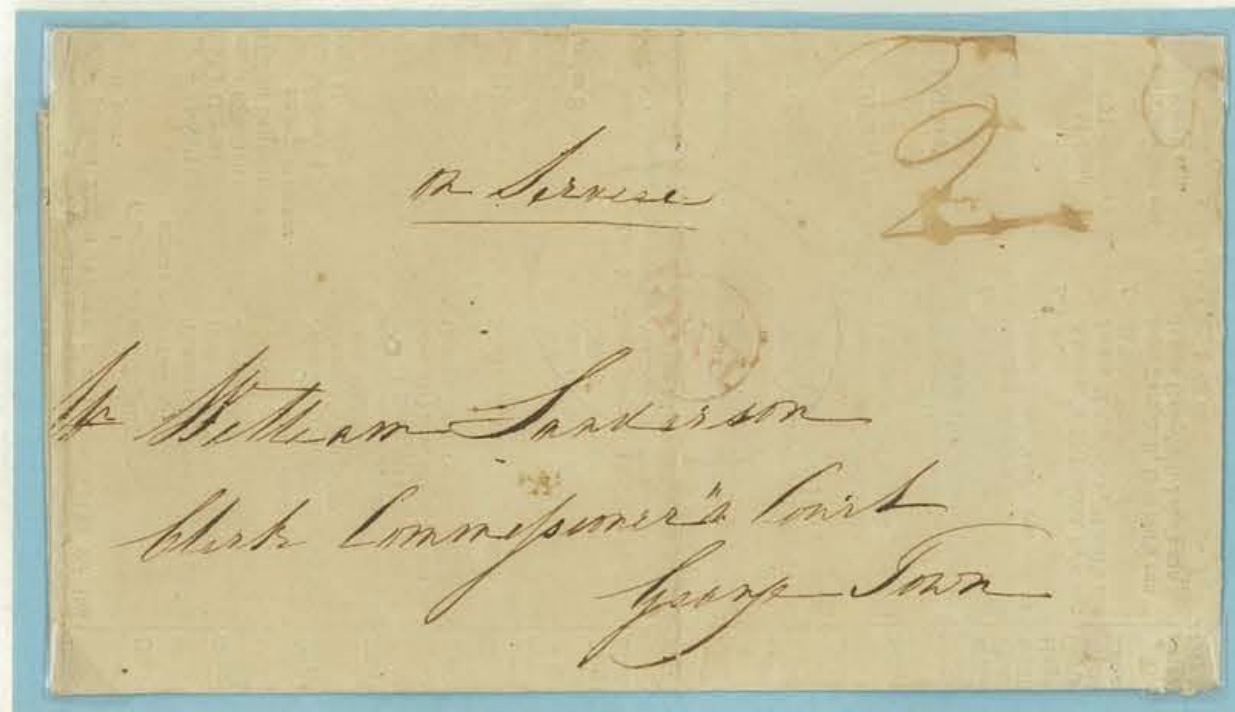 on Servise
Mr William Sanderson
Clerk Commissioner"s Court
George Town